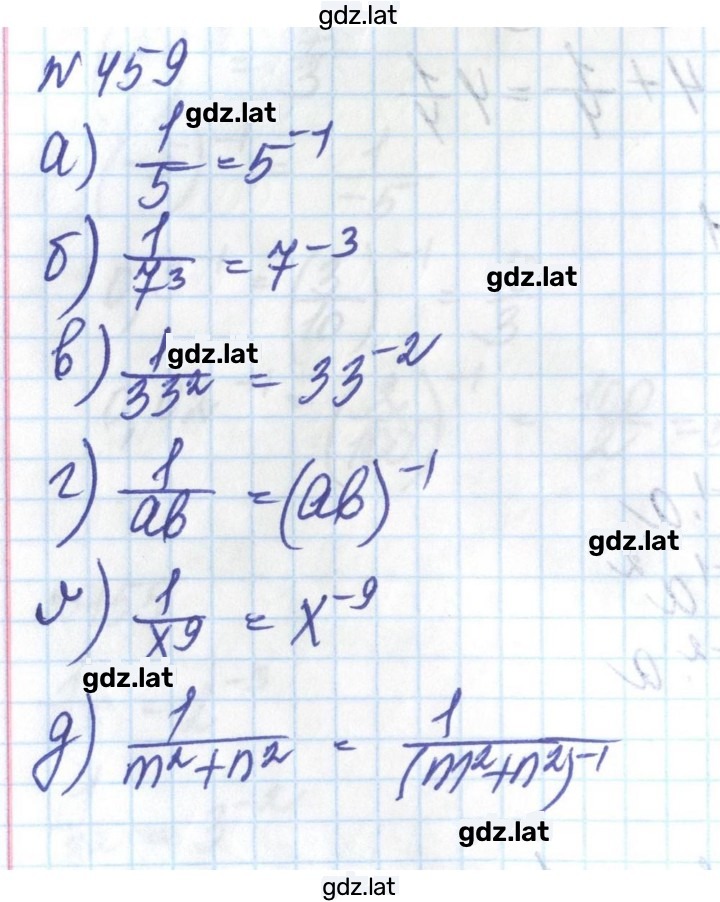 gdz.lat
№ 459
gdz.lat
а) 1/5 = 5^-1
б) 1/7^3 = 7^-3
gdz.lat
в) 1/33^2 = 33^-2
gdz.lat
г) 1/ab = (ab)^-1
gdz.lat
1/x^9 = x^-9
gdz.lat
д) 1/m^2+n^2 = 1/(m^2+n^2)^-1
gdz.lat
gdz.lat